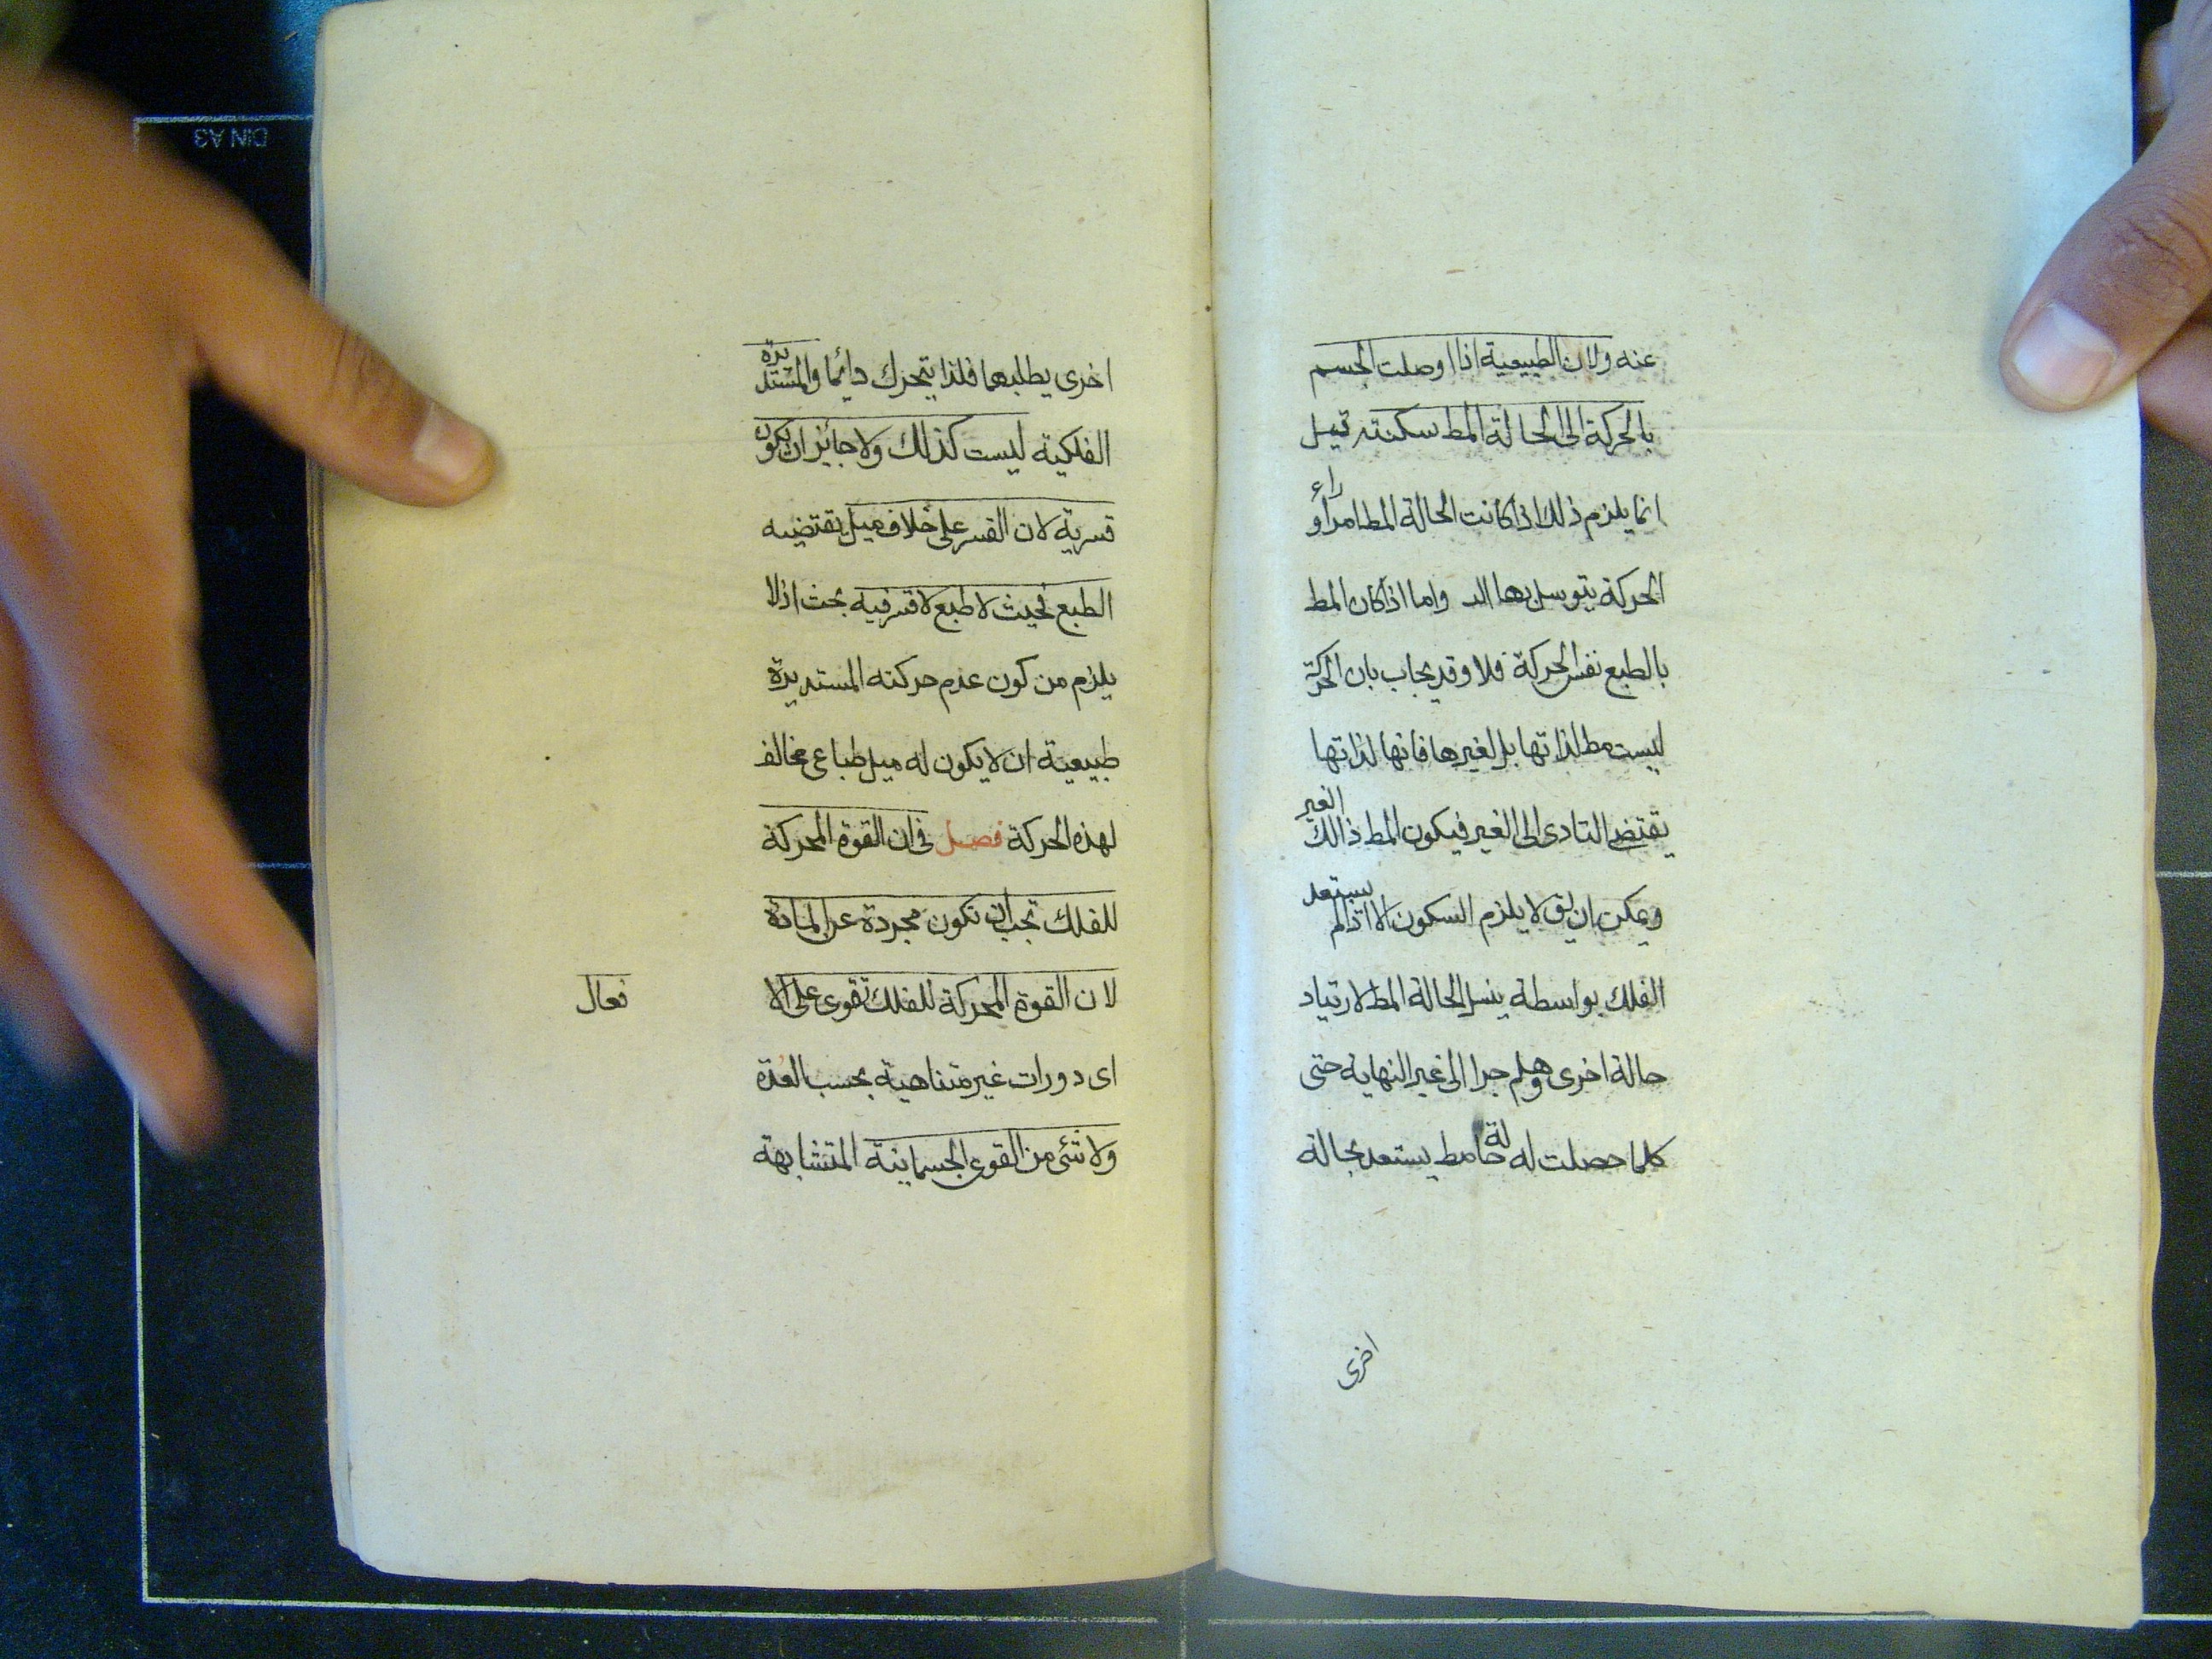 عنه ولان الطبيعية اذا اوصلت الجسم
بالحركة الى الحالة المط سكنته قيل
انما يلزم ذلك اذا كانت الحالة المط امرا وراء
الحركة يتوسل بها اليه واما اذا كان المط
بالطبع نفس الحركة فلا وقد يجاب بان الحركة
ليست مط لذاتها بل لغيرها فانها لذاتها
يقتضى التادى الى الغير فيكون المط ذالك الغير
ويمكن ان يق لا يلزم السكون الا اذا لم يستعد
الفلك بواسطة ينسل الحالة المط لارتياد
حالة اخرى وهلم جرا الى غير النهاية حتى
كلما حصلت له حالة مط يستعد بحالة
اخرى
اخرى يطلبها فلذا يتحرك دائما والمستديرة
الفلكية ليست كذلك ولا جائز ان يكون
قسرية لان القسر على خلاف ميل يقتضيه
الطبع فحيث لا طبع لا قسر فيه بحث اذ لا
يلزم من كون عدم حركته المستديرة
طبيعية ان لا يكون له ميل طباعى مخالف
لهذه الحركة فصل فى ان القوة المحركة
للفلك تجب ان تكون مجردة عن المادة
لان القوة المحركة للفلك تقوى على الا فعال
اى دورات غير متناهية بحسب العدة
ولا شئ من القوى الجسمانية المتشابهة